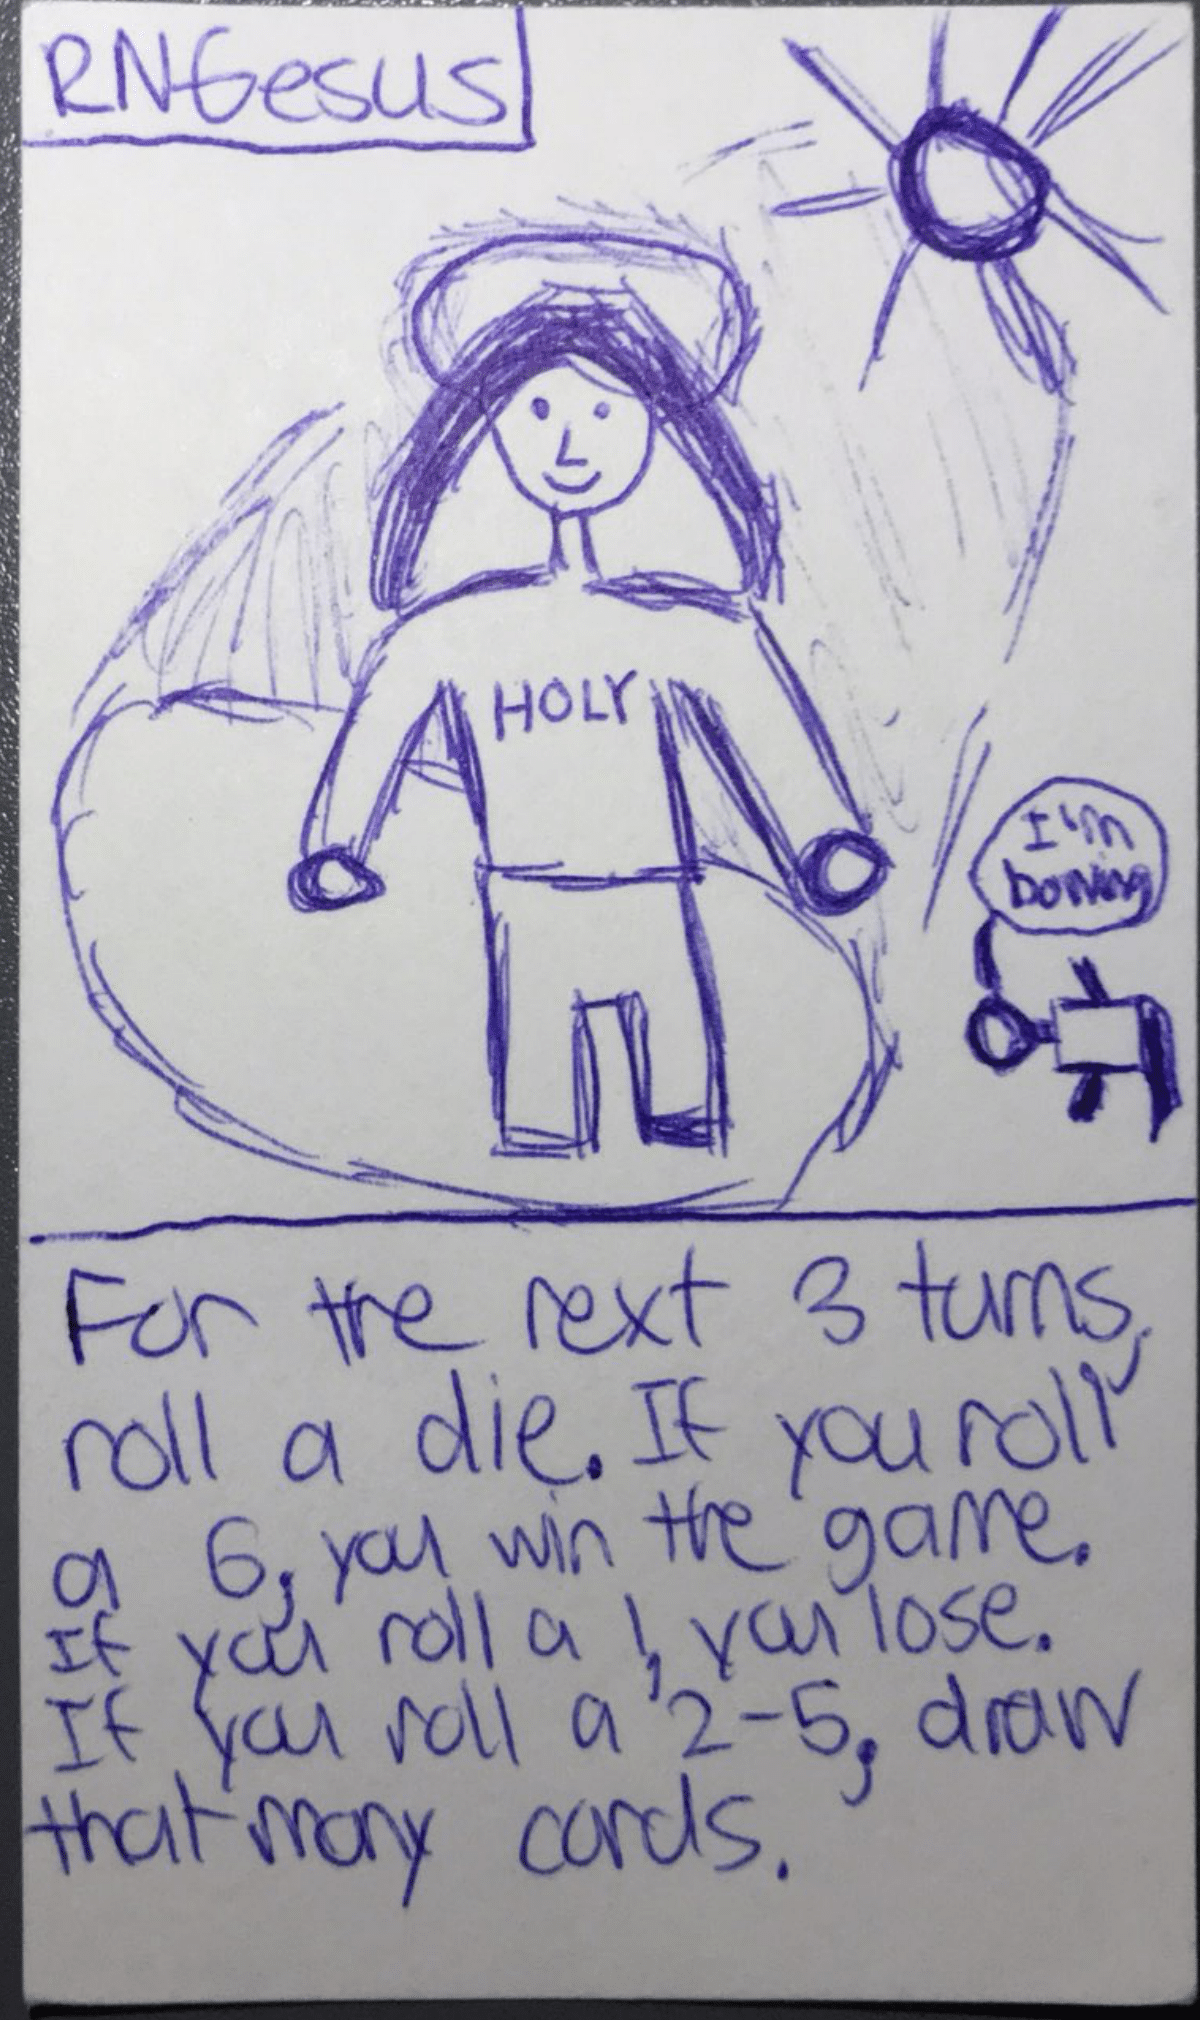 RNGesus
HOLY
I'm
bowing
For the next 3 turns,
roll a die. If you roll
a 6, you win the game.
If you roll a 1, you lose.
If you roll a 2-5, draw
that many cards.